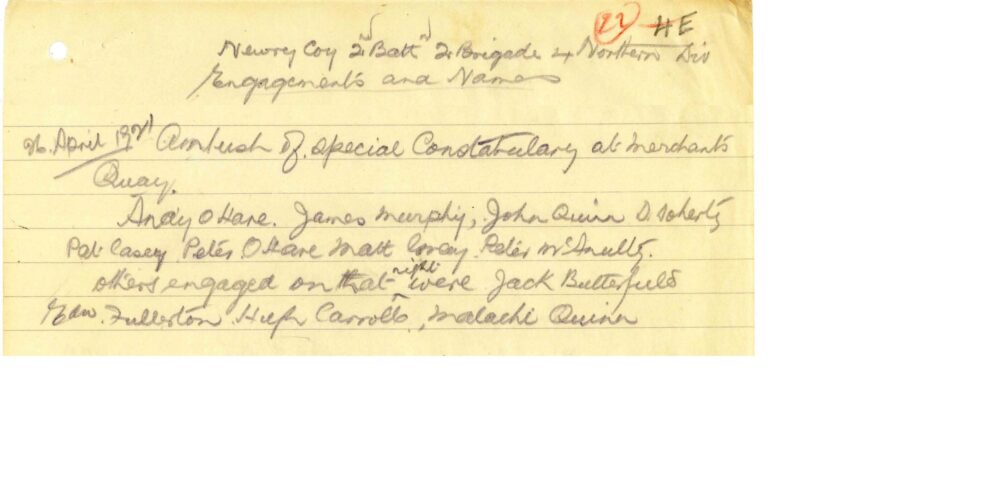 22 HE
Newry Coy 2nd Batt 2nd Brigade 4 Northern Div
Engagements and Names
26. April 1921 Ambush of special Constabulary at Merchants
Quay.
Andy O Hare. James Murphy, John Quinn D. Doherty
Pat Casey Peter O Hare Matt Peter McAnulty.
others engaged on that night were Jack Butterfield
Edw. Fullerton Hugh Carroll, Malachi Quinn